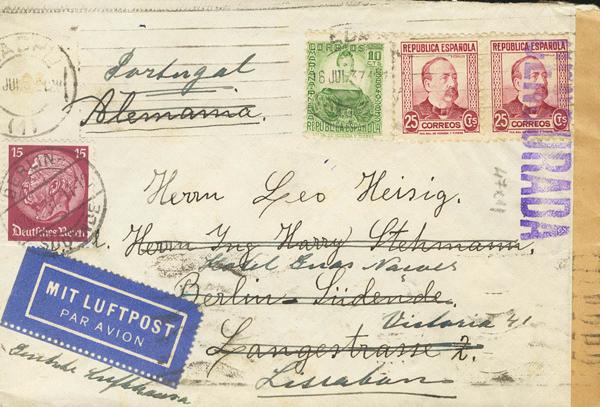 MADRID
JUL.
(1)
Portugal
Alemania.
6 JUL 37
CORREOS 10 CTS
REPUBLICA ESPAÑOLA
REPUBLICA ESPAÑOLA
25 CORREOS Cts
REPUBLICA ESPAÑOLA
25 CORREOS Cts
CENSURADA
15 15
Deutsches Reich
BERLIN
Herrn Leo Heisig.
Herrn Ing Harry Stehmann,
Hotel
Berlin-Südende.
Victoria 41
Langestrasse 2.
Lissabon
MIT LUFTPOST
PAR AVION
Deutsche Lufthansa